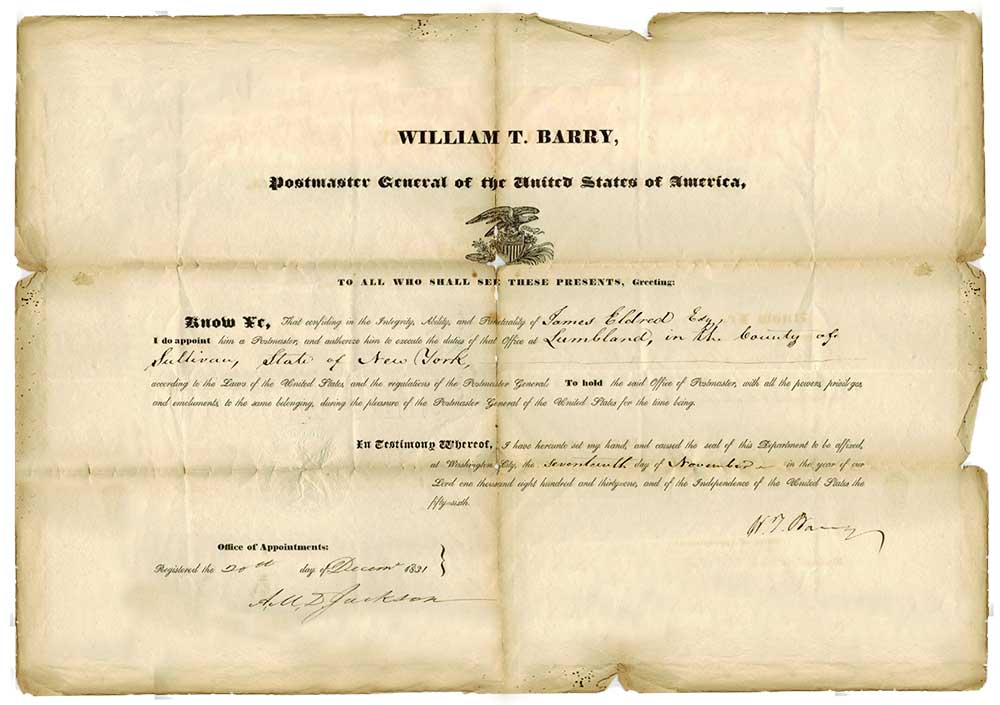 WILLIAM T. BARRY,
Postmaster General of the United States of America,
TO ALL WHO SHALL SEE THESE PRESENTS, Greeting:
Know Ye, That confiding in the Integrity, Ability, and Punctuality of James Eldred Esq,
I do appoint him a Postmaster, and authorize him to execute the duties of that Office at Lumbland, in the County of
Sullivan, State of New York,
according to the Laws of the United States, and the regulations of the Postmaster General. To hold the said Office of Postmaster, with all the powers, privileges,
and emoluments, to the same belonging, during the pleasure of the Postmaster General of the United States for the time being.
In Testimony Whereof, I have hereunto set my hand, and caused the seal of this Department to be affixed,
at Washington City, the Seventeenth day of November in the year of our
Lord one thousand eight hundred and thirty-one, and of the Independence of the United States the
fifty-sixth.
W. T. Barry
Office of Appointments:
Registered the 20th day of Decemr 1831
A.M.D. Jackson